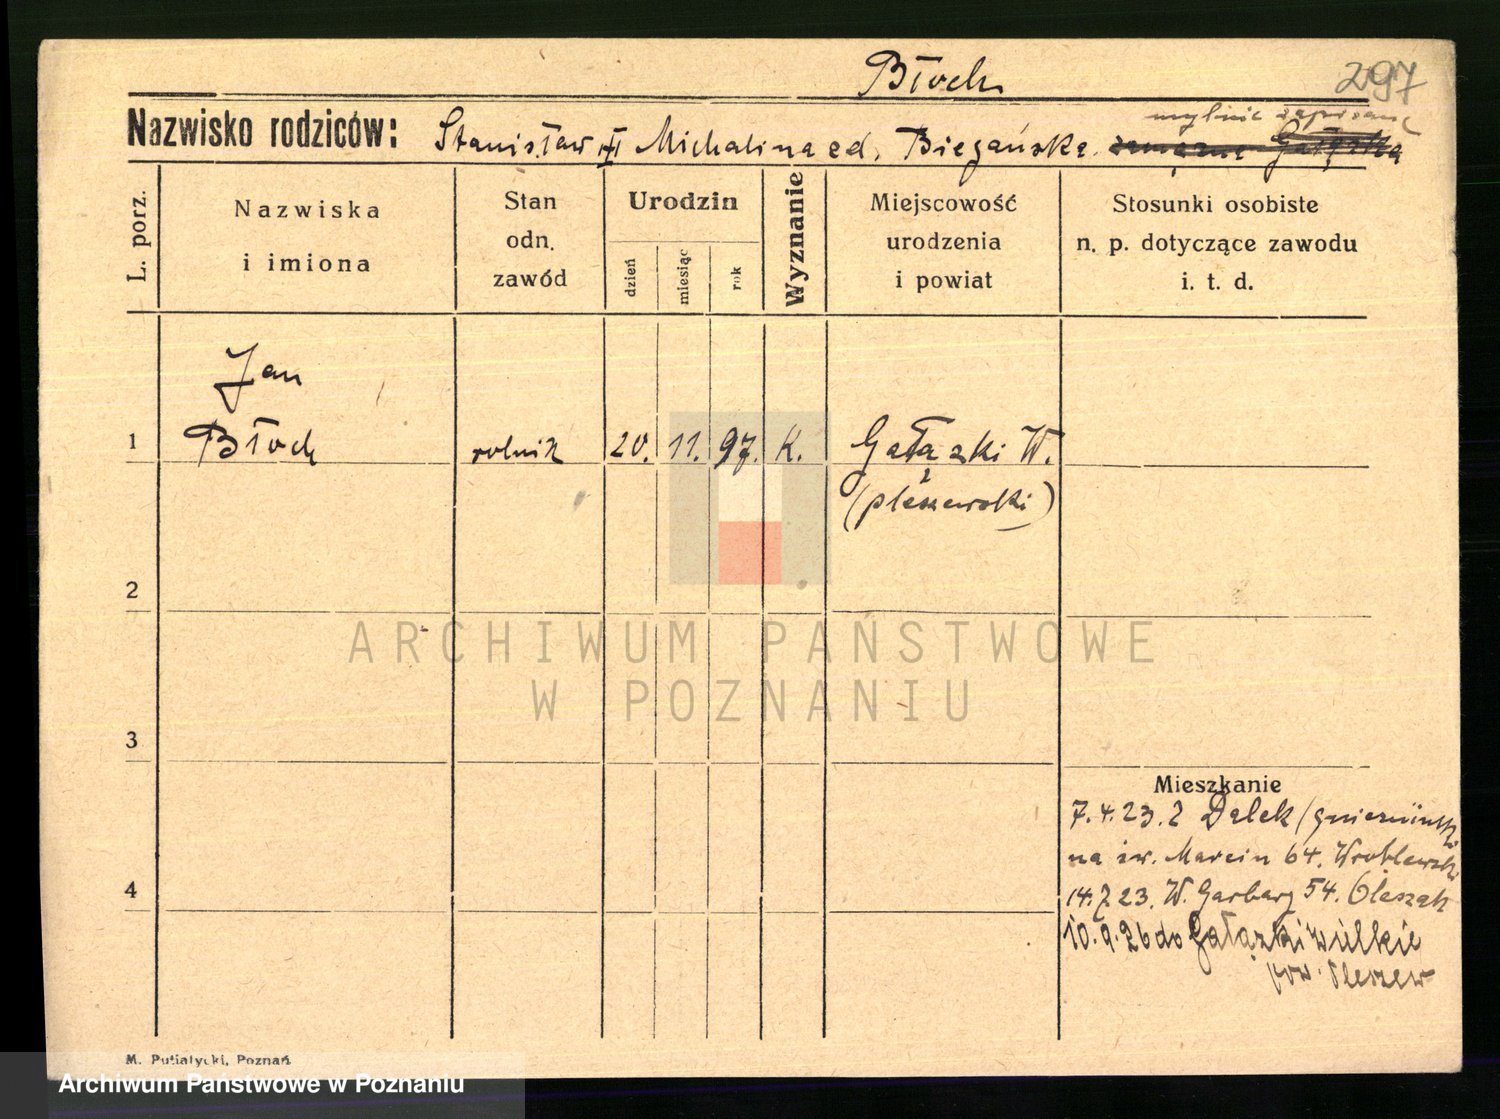 Błoch
297
mylnie zapisane
Nazwisko rodziców: Stanisław Michalina ed. Biegańska. zamężna Gałązka
L. porz.
Nazwiska
i imiona
Stan
odn.
zawód
Urodzin
dzień
miesiąc
rok
Wyznanie
Miejscowość
urodzenia
i powiat
Stosunki osobiste
n. p. dotyczące zawodu
i. t. d.
Jan
1 Błoch rolnik 20. 11. 97. K. Gałązki W.
(pleszewski)
2
3
4
Mieszkanie
7.4.23. z Dalek (gnieźnieński
na św. Marcin 64. Wróblewski
14.7 23. W. Garbary 54. Oleszak
10.9.26 do Gałązki wielkie
pow. Pleszew
M. Putiatycki, Poznań
ARCHIWUM PAŃSTWOWE
W POZNANIU
Archiwum Państwowe w Poznaniu